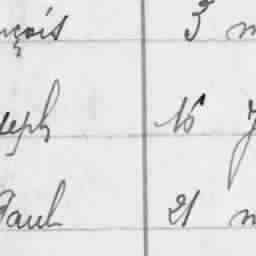 nçois 3 m
seph 16 J
Paul 21 m